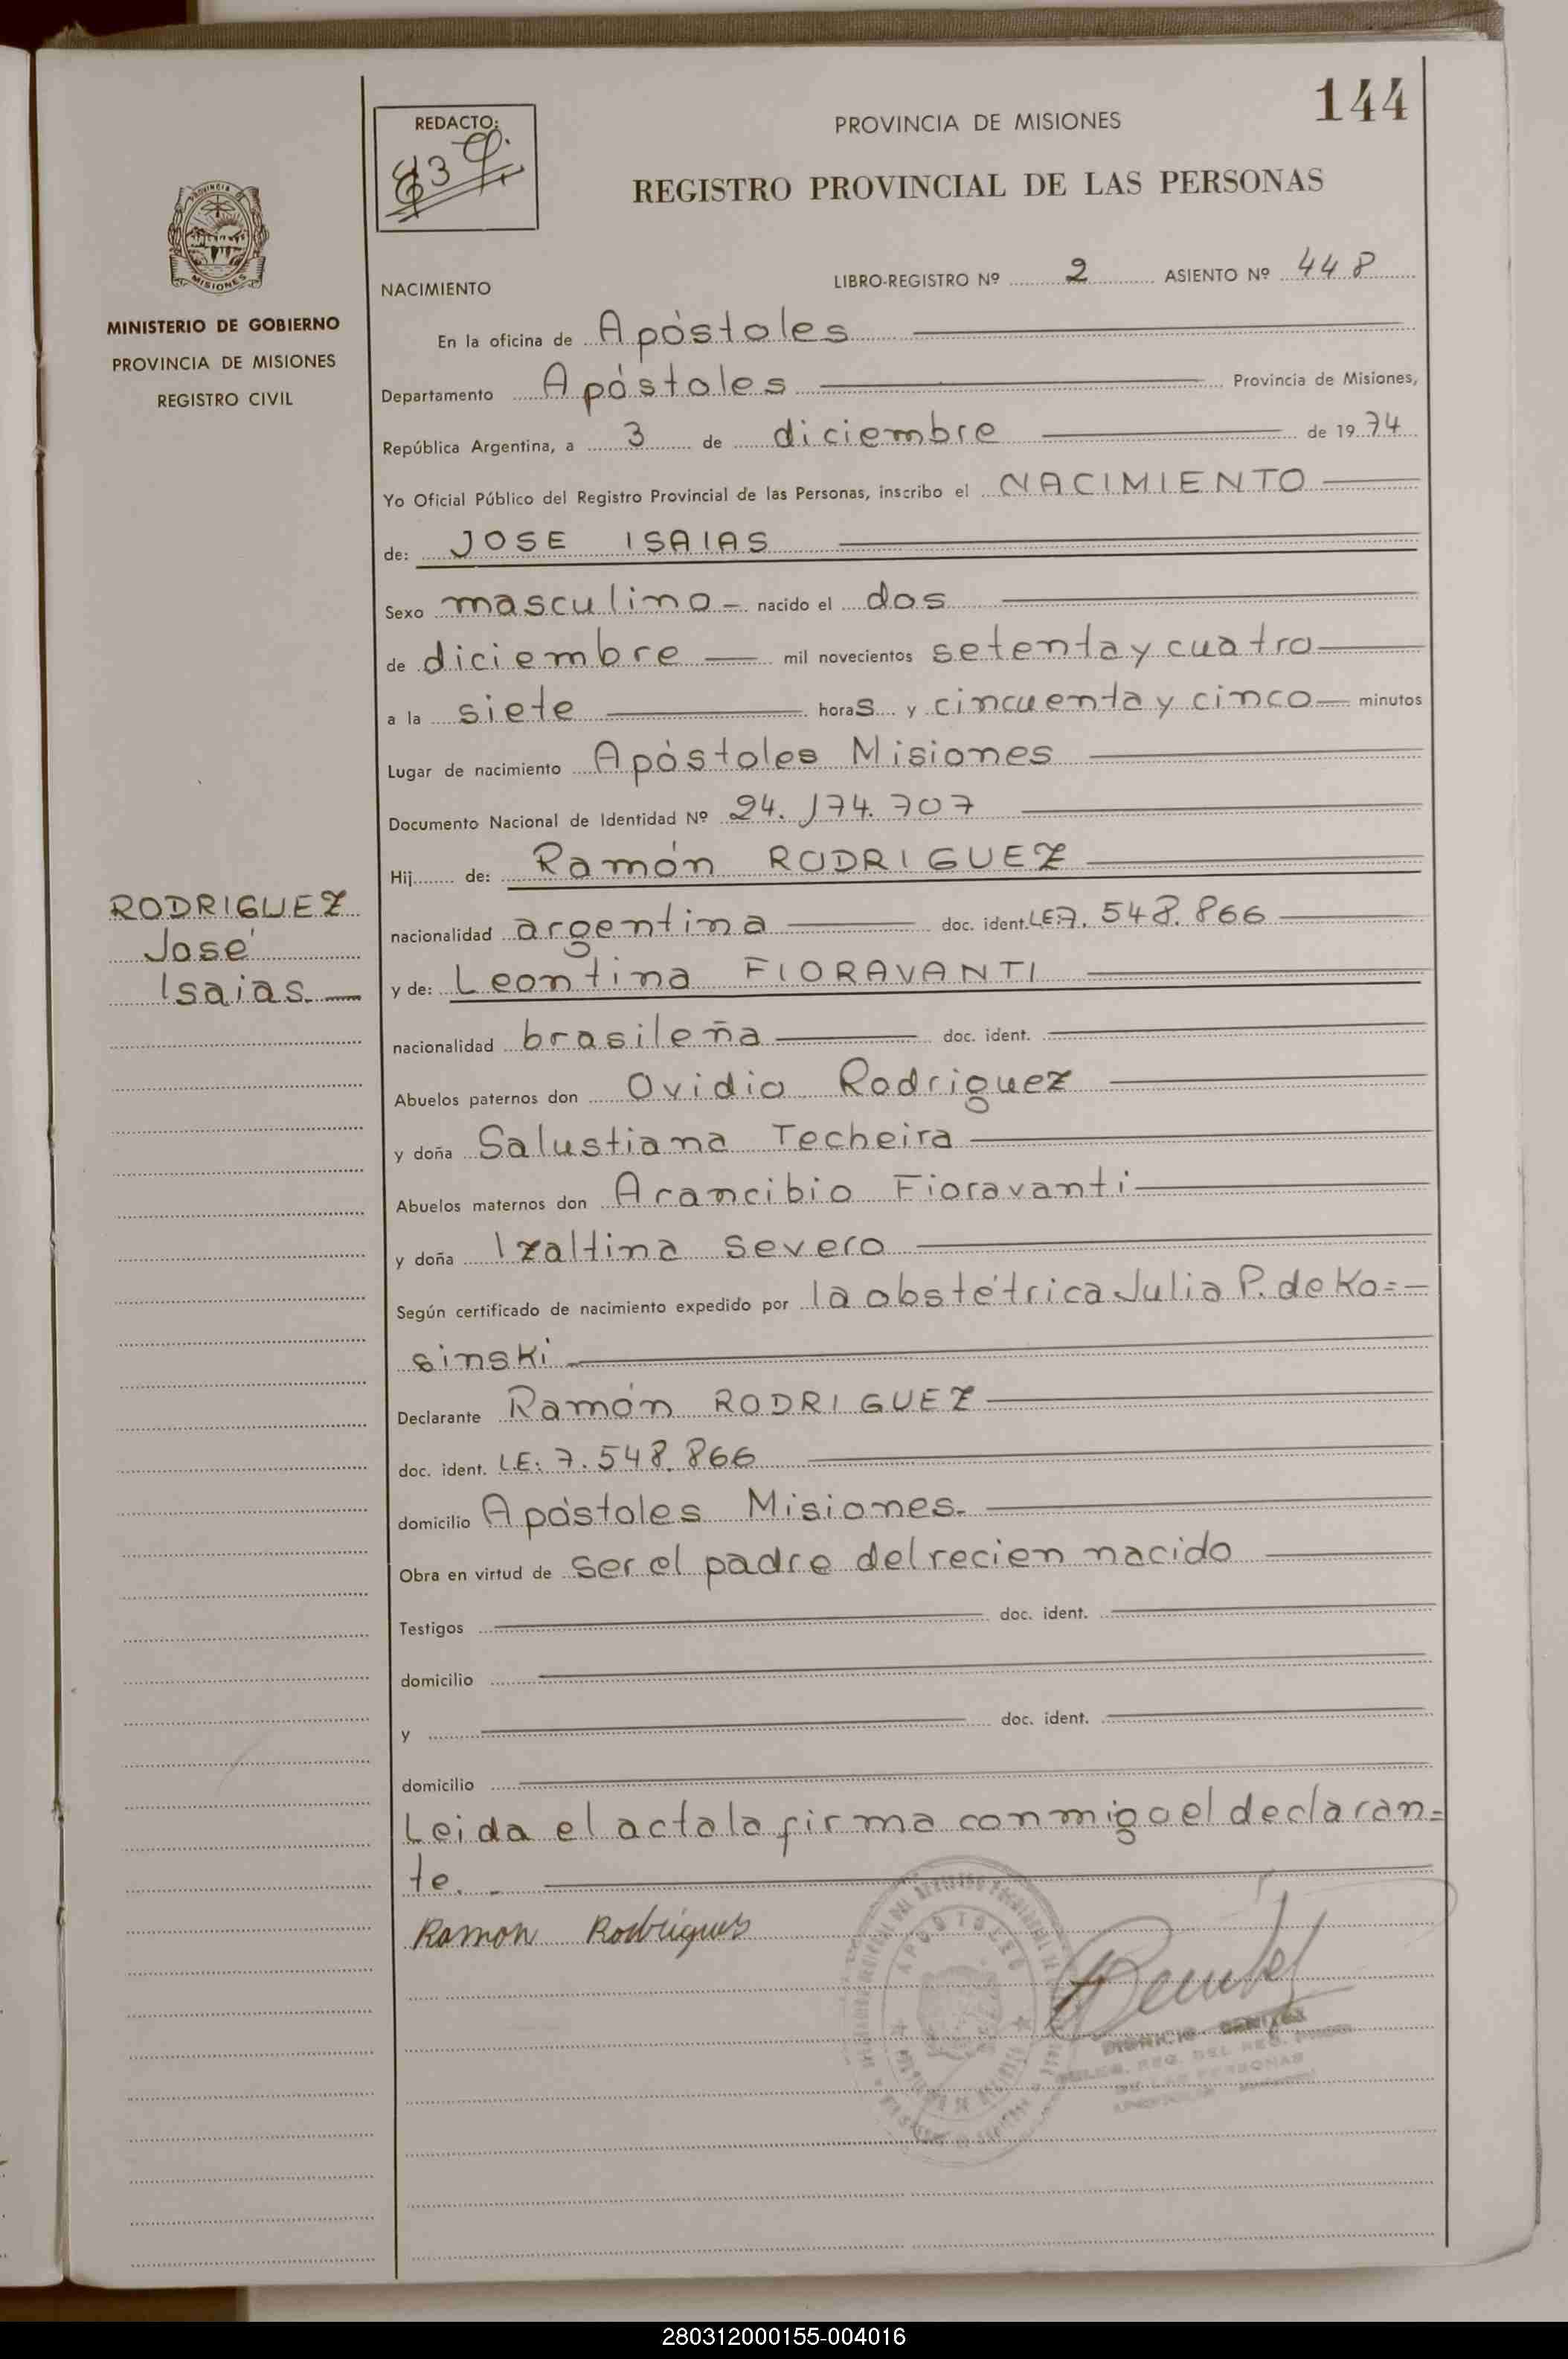 144
REDACTO:
PROVINCIA DE MISIONES
REGISTRO PROVINCIAL DE LAS PERSONAS
MINISTERIO DE GOBIERNO
PROVINCIA DE MISIONES
REGISTRO CIVIL
RODRIGUEZ
José
Isaias.
NACIMIENTO LIBRO-REGISTRO Nº 2 ASIENTO Nº 448
En la oficina de Apóstoles
Departamento Apóstoles Provincia de Misiones,
República Argentina, a 3 de diciembre de 1974
Yo Oficial Público del Registro Provincial de las Personas, inscribo el NACIMIENTO
de: JOSE ISAIAS
Sexo masculino nacido el dos
de diciembre mil novecientos setenta y cuatro
a la siete horas y cincuenta y cinco minutos
Lugar de nacimiento Apóstoles Misiones
Documento Nacional de Identidad Nº 24.174.707
Hij de: Ramón RODRIGUEZ
nacionalidad argentina doc. ident. LE:7.548.866
y de: Leontina FIORAVANTI
nacionalidad brasileña doc. ident.
Abuelos paternos don Ovidio Rodriguez
y doña Salustiana Techeira
Abuelos maternos don Arancibio Fioravanti
y doña Izaltina Severo
Según certificado de nacimiento expedido por la obstétrica Julia P. de Ko=
sinski
Declarante Ramón RODRIGUEZ
doc. ident. LE: 7.548.866
domicilio Apóstoles Misiones.
Obra en virtud de ser el padre del recien nacido
Testigos doc. ident.
domicilio
y doc. ident.
domicilio
Leida el acta la firma conmigo el declaran=
te.
Ramon Rodriguez
APOSTOLES
280312000155-004016